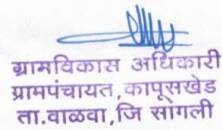 ग्रामविकास अधिकारी
ग्रामपंचायत,कापूसखेड
ता.वाळवा,जि सांगली